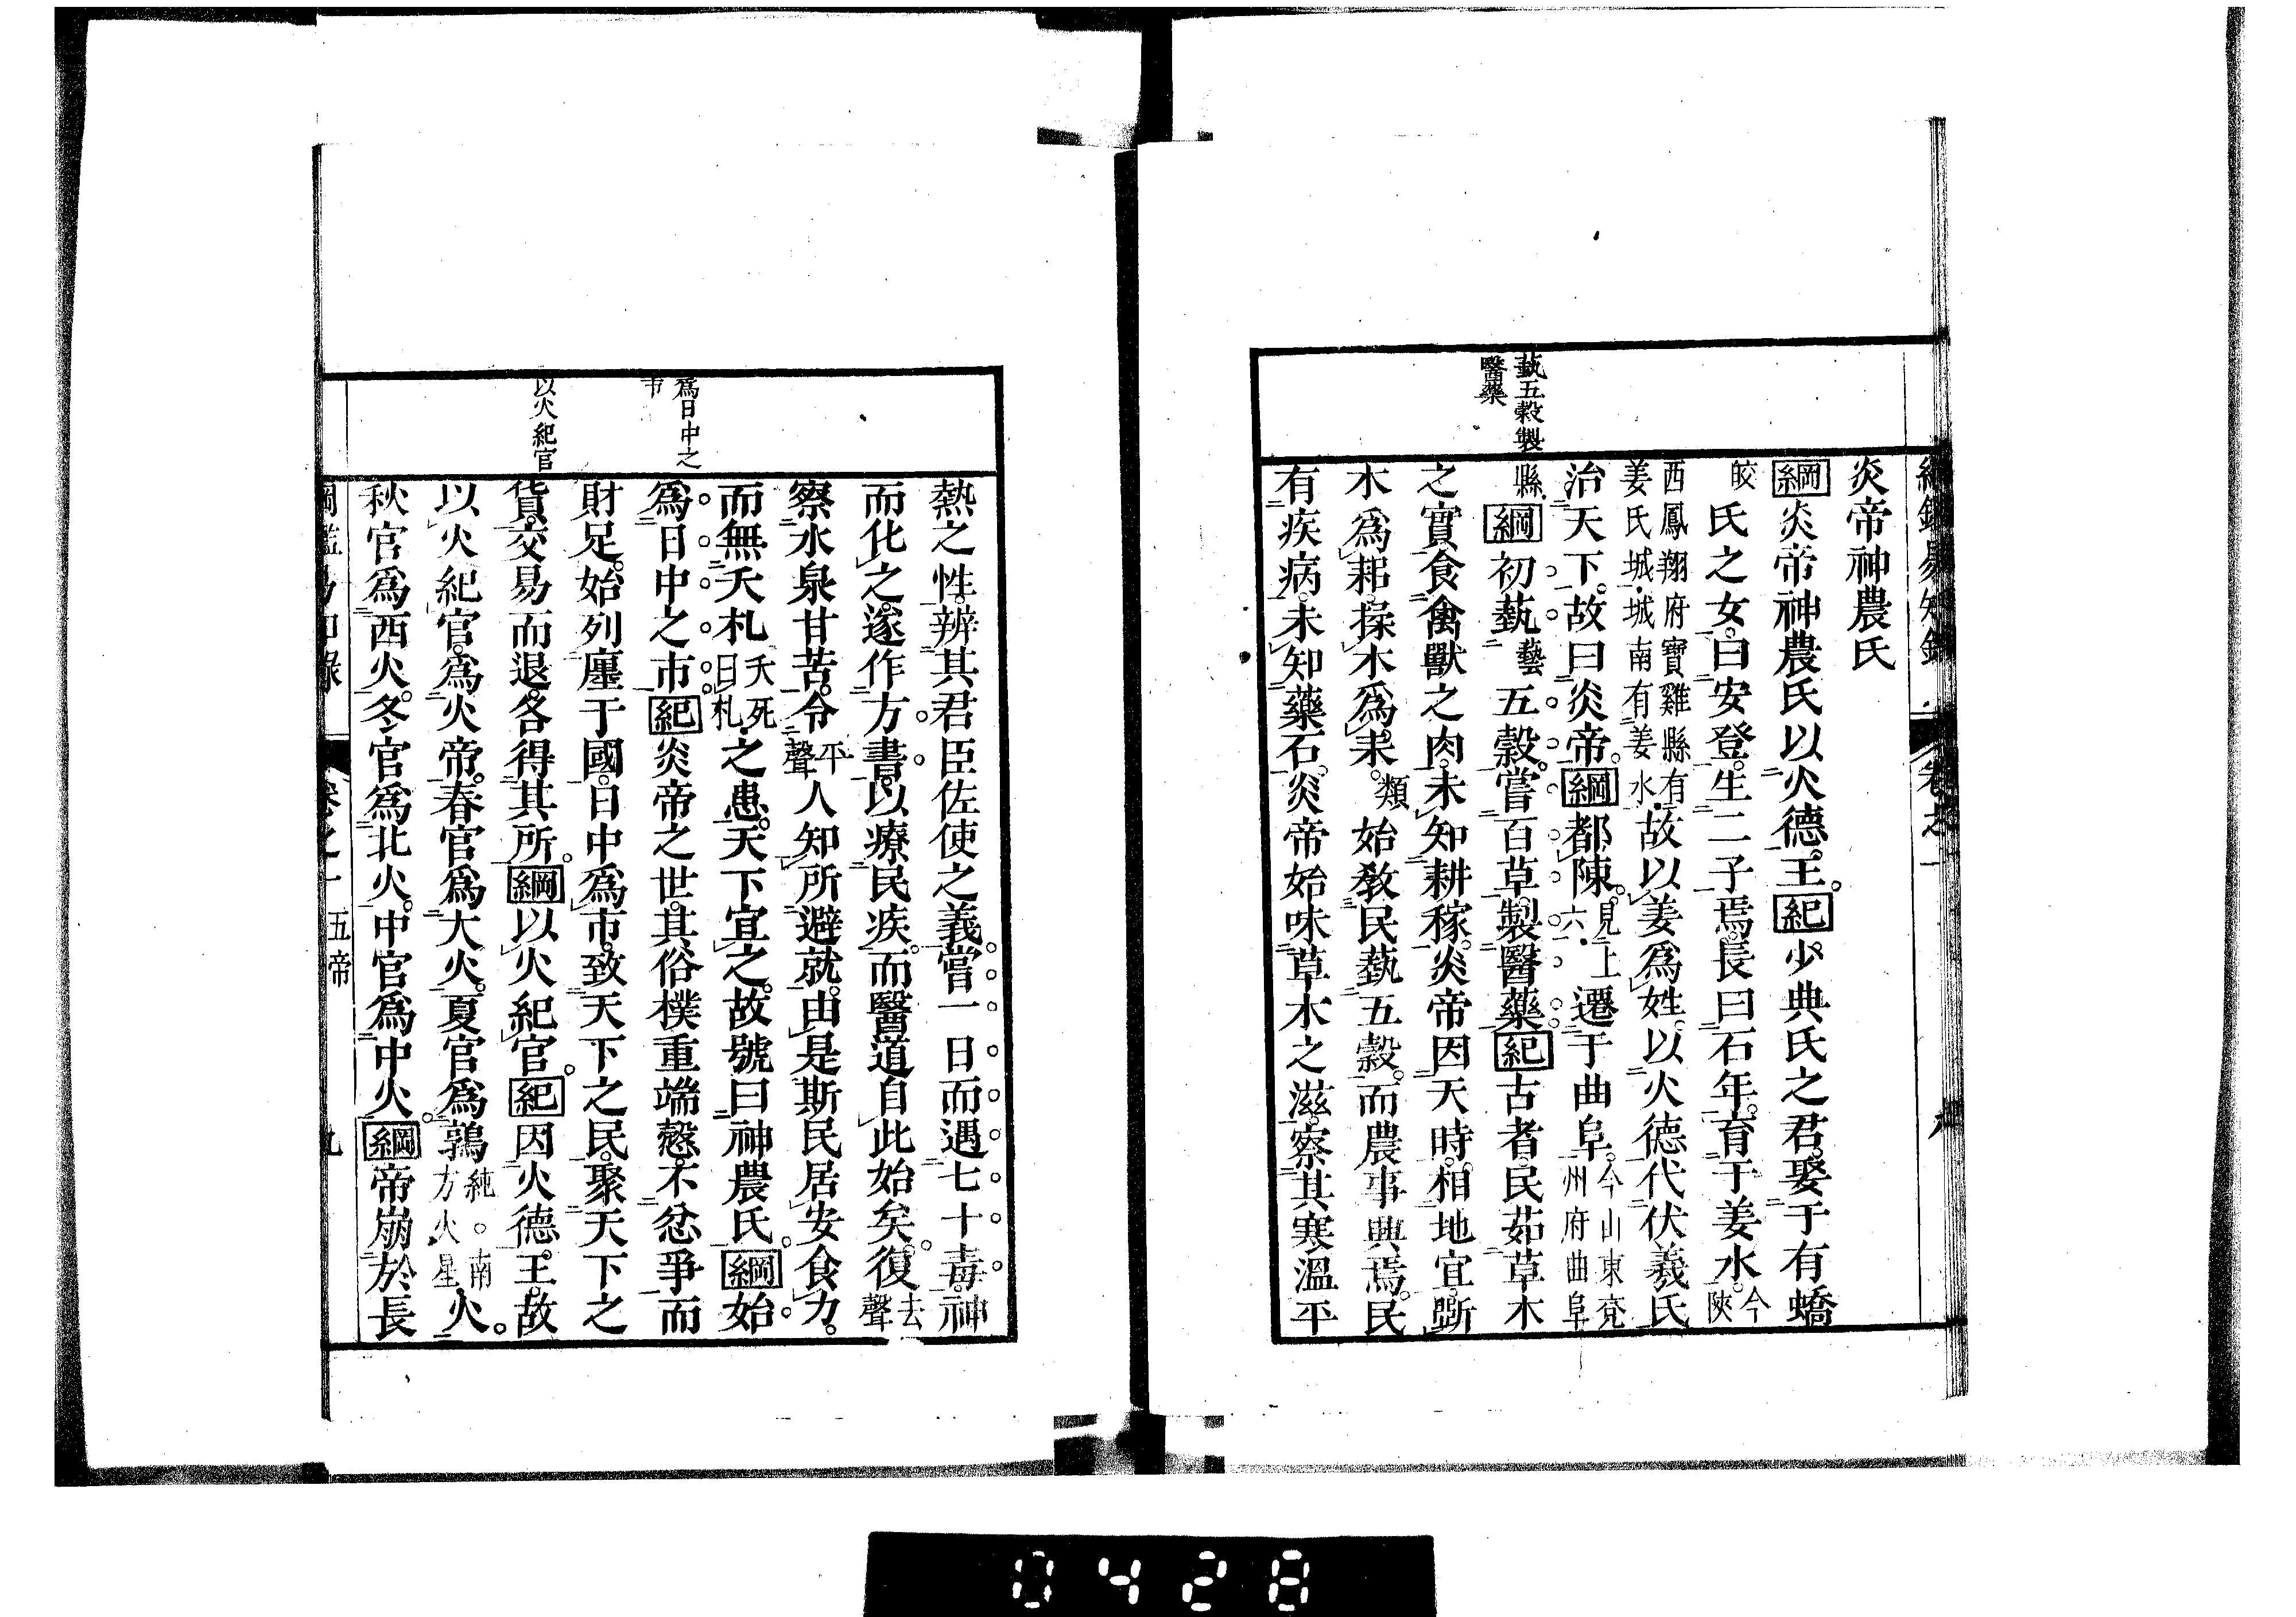 炎帝神農氏
綱炎帝神農氏以火德王。紀少典氏之君。娶于有蟜
皎氏之女。曰安登。生二子焉。長曰石年。育于姜水。今陝
西鳳翔府寶雞縣有姜氏城。城南有姜水。故以姜爲姓。以火德代伏羲氏
治天下。故曰炎帝。綱都陳。見上六。遷于曲阜。今山東兗州府曲阜
縣。綱初蓺藝五穀。嘗百草。製醫藥。紀古者民茹草木
之實。食禽獸之肉。未知耕稼。炎帝因天時。相地宜。斲
木爲耜。揉木爲耒。類始敎民蓺五穀。而農事興焉。民
有疾病。未知藥石。炎帝始味草木之滋。察其寒溫平
蓺五穀製
醫藥
熱之性。辨其君臣佐使之義。嘗一日而遇七十毒。神
而化之。遂作方書。以療民疾。而醫道自此始矣。復去聲
察水泉甘苦。令平聲人知所避就。由是斯民居安食力。
而無夭札夭死曰札之患。天下宜之。故號曰神農氏。綱始
爲日中之市。紀炎帝之世。其俗樸重端愨。不忿爭而
財足。始列廛于國。日中爲市。致天下之民。聚天下之
貨。交易而退。各得其所。綱以火紀官。紀因火德王。故
以火紀官。爲火帝。春官爲大火。夏官爲鶉純。南方火星火。
秋官爲西火。冬官爲北火。中官爲中火。綱帝崩於長
爲日中之
市
以火紀官
卷之一 五帝 九
0428